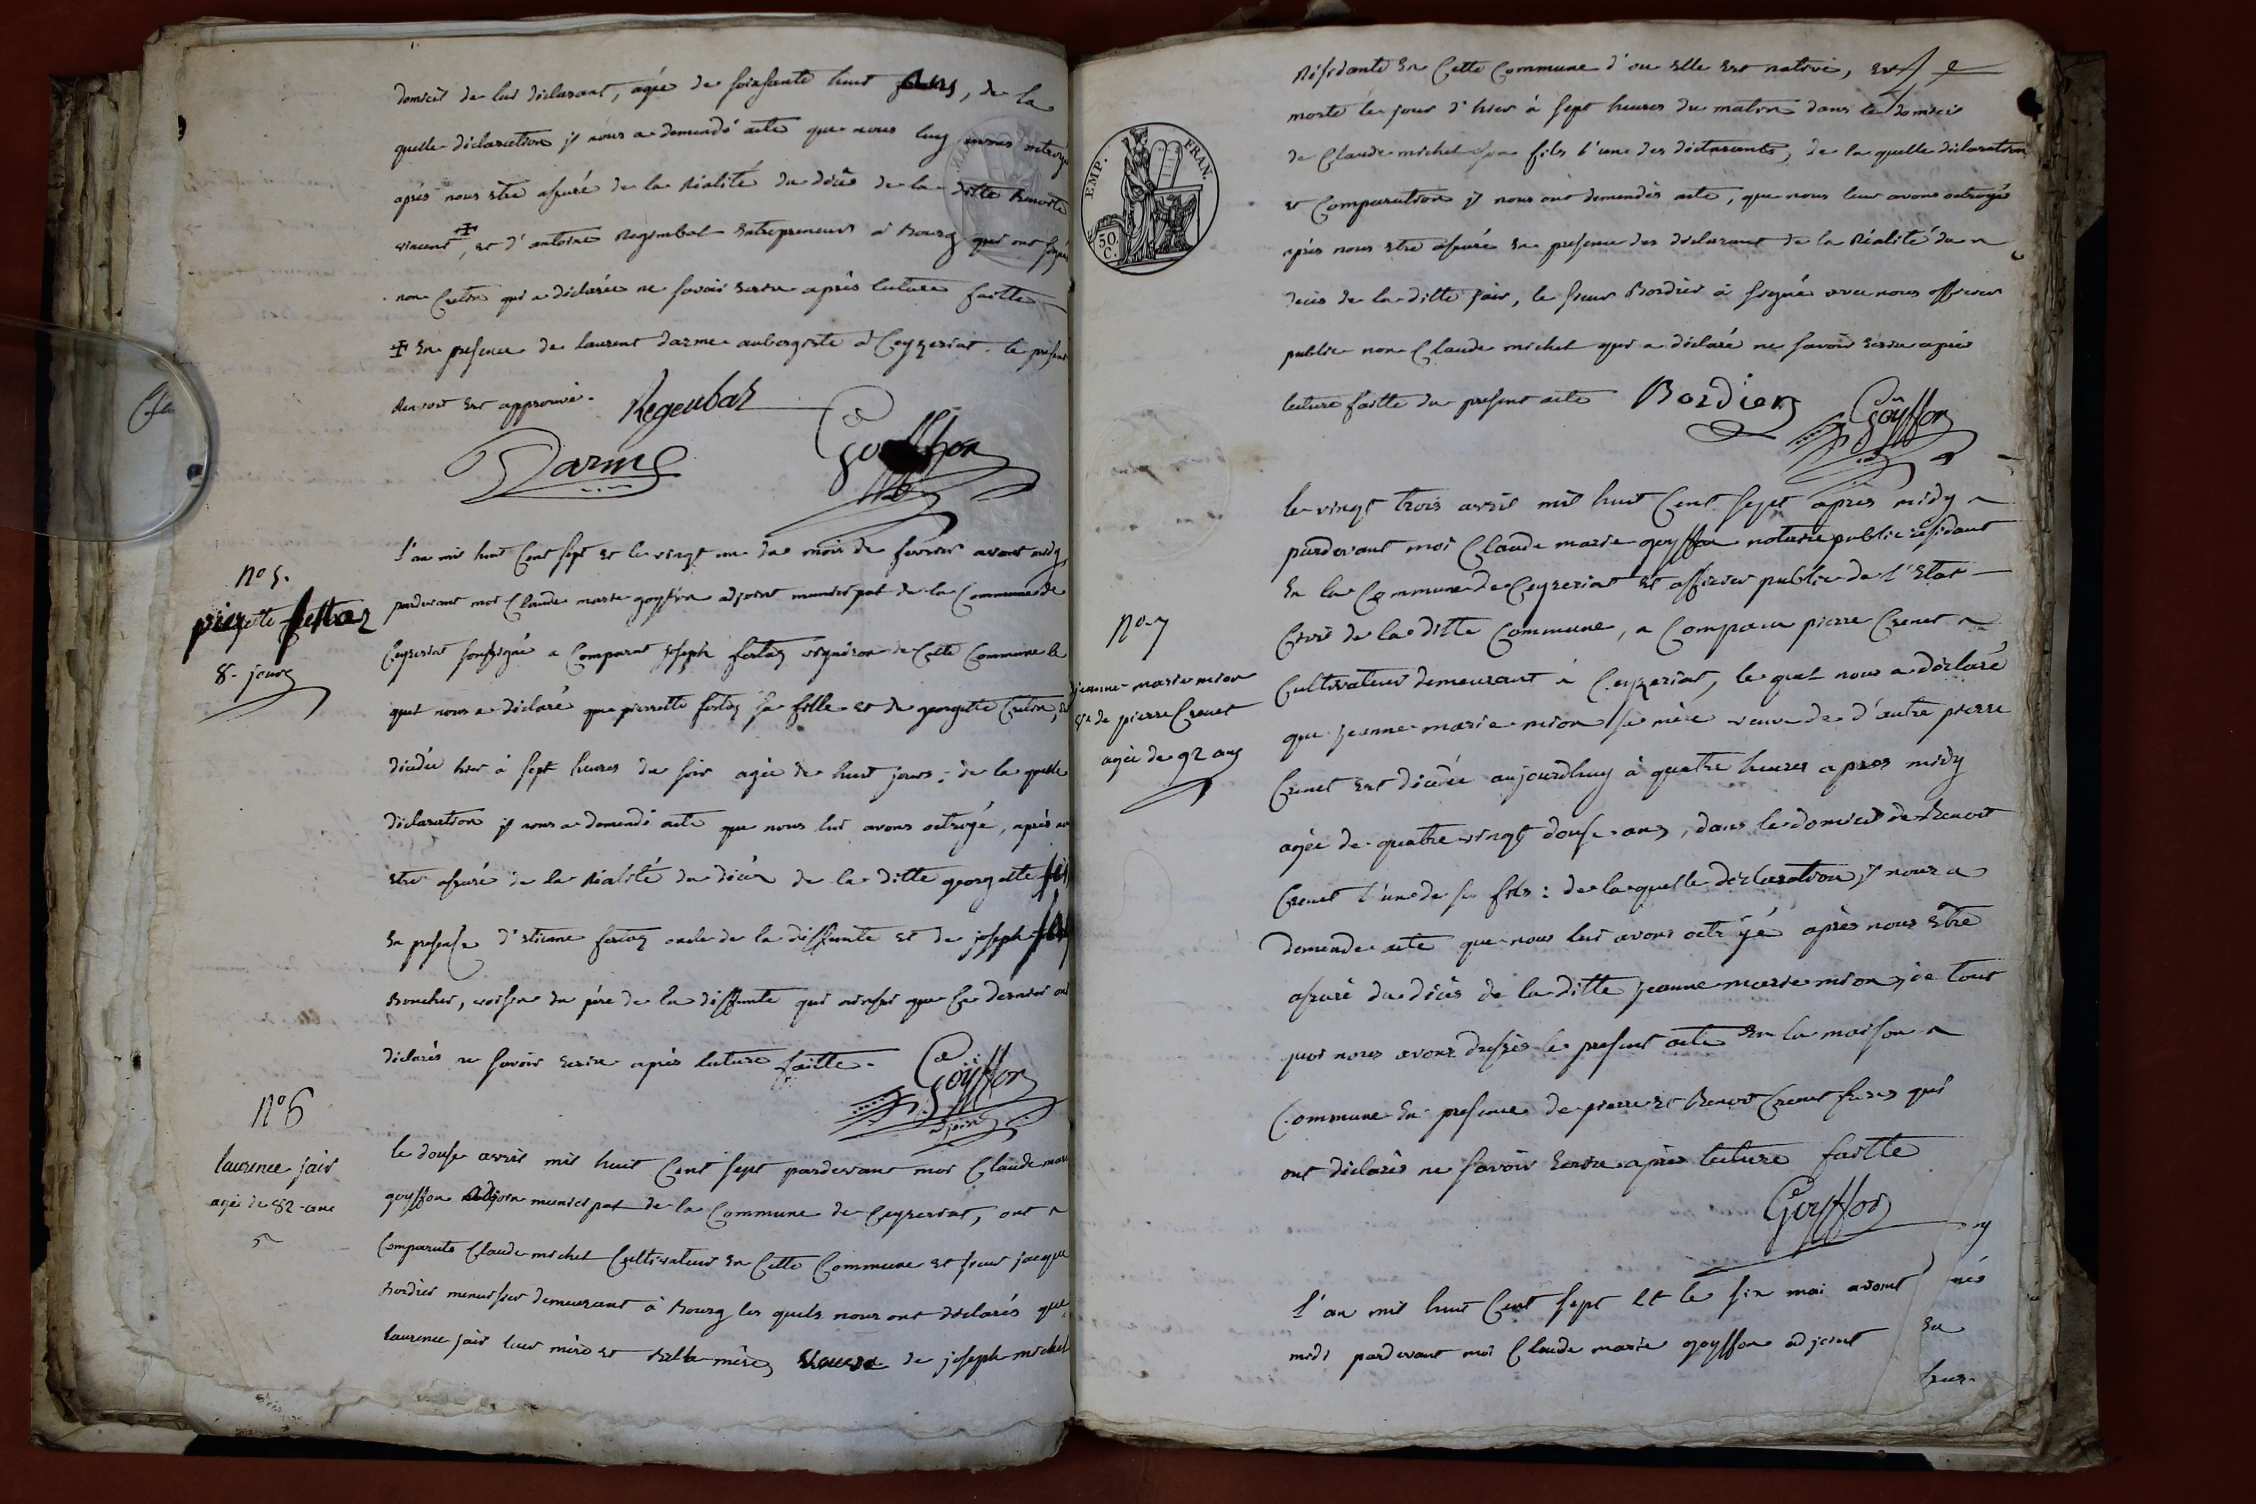 domicil de lui déclarant, agée de soixante huit ans, de la
quelle déclaration il nous a demandé acte que nous luy avons octroyé
après nous etre assuré de la réalité du décès de la ditte Benoite
vincent ✠, et d'antoine Regimbal entrepreneur à Bourg qui ont signé
non Cretin qui a déclarée ne savoir ecrire après lecture faitte
✠ En presence de laurent darme aubergiste à Ceyzeriat. le présent
Renvoit est approuvé.
Regembal
Darme
Goyffon
N° 5.
pierrette fertaz
8. jours
L'an mil huit Cent sept et le vingt un du mois de fevrier avant midy
pardevant moi Claude marie goyffon adjoint municipal de la Commune de
Ceyzeriat soussigné a Comparut joseph fertaz vigneron de Cette Commune le
quel nous a déclaré que pierrette fertaz sa fille et de georgette Cretin, est
décédée hier à sept heures du soir agée de huit jours; de la quelle
déclaration il nous a demandé acte que nous lui avons octroyé, après nous
etre assuré de la réalité du décès de la ditte georgette
En presence d'etienne fertaz oncle de la deffunte et de joseph
Boucher, voisin du père de la deffunte qui ainsi que ce dernier ont
déclarés ne savoir ecrire après lecture faitte.
Goyffon
adjoint
N° 6
laurence jair
agée de 82 ans
le douse avril mil huit Cent sept pardevant moi Claude marie
goyffon adjoin municipal de la Commune de Ceyzeriat, ont
Comparuts Claude michel Cultivateur en Cette Commune et sieur jacque
Bordier menuisier demeurant à Bourg les quels nous ont déclarés que
laurence jair leur mère et Belle mère, veuve de joseph michel
EMP. FRAN.
50 C.
Résidante en Cette Commune d'ou elle est native, est
morte le jour d'hier à sept heures du matin dans le domicil
de Claude michel son fils l'un des déclarants, de la quelle déclaration
et Comparution il nous ont demandés acte, que nous leur avons octroyé
après nous etre assuré en presence des déclarant de la Réalité du
décès de la ditte jair, le sieur Bordier à signé avec nous officier
public non Claude michel qui a déclaré ne savoir ecrire après
lecture faitte du present acte
Bordier
Goyffon
N° 7
jeanne-marie mion
v.e de pierre Crenet
agée de 92 ans
le vingt trois avril mil huit Cent sept apres midy
pardevant moi Claude marie goyffon notaire public résidant
En la Commune de Ceyzeriat et officier public de l'Etat
Civil de la ditte Commune, a Comparu pierre Crenet
Cultivateur demeurant à Ceyzeriat, le quel nous a déclaré
que jeanne marie mion sa mère veuve de d'autre pierre
Crenet est décédée aujourdhuy à quatre heures apres midy
agée de quatre vingt douse ans, dans le domicil de Benoit
Crenet l'un de ses fils: de la quelle déclaration il nous a
demande acte que nous lui avons octroyé après nous Etre
assuré du décès de la ditte jeanne marie mion, de tout
quoi nous avons dressés le present acte En la maison
Commune En presence de pierre et Benoit Crenet freres qui
ont déclarés ne savoir Ecrire après lecture faitte
Goyffon
L'an mil huit Cent sept et le six mai avant
midi pardevant moi Claude marie goyffon adjoint